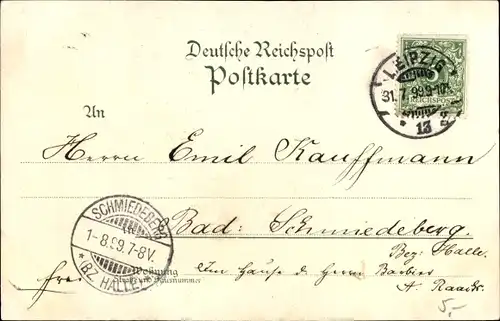 Deutsche Reichspost
Postkarte
LEIPZIG
31.7.99.9-10
* 13
REICHSPOST
An
Herrn Emil Kauffmann
SCHMIEDEBERG
1-8.99.7-8V.
* (BZ. HALLE)
Bad: Schmiedeberg.
Bez: Halle.
Frei
Wohnung
Im Hause d. Herrn Barbier
A.
5,-